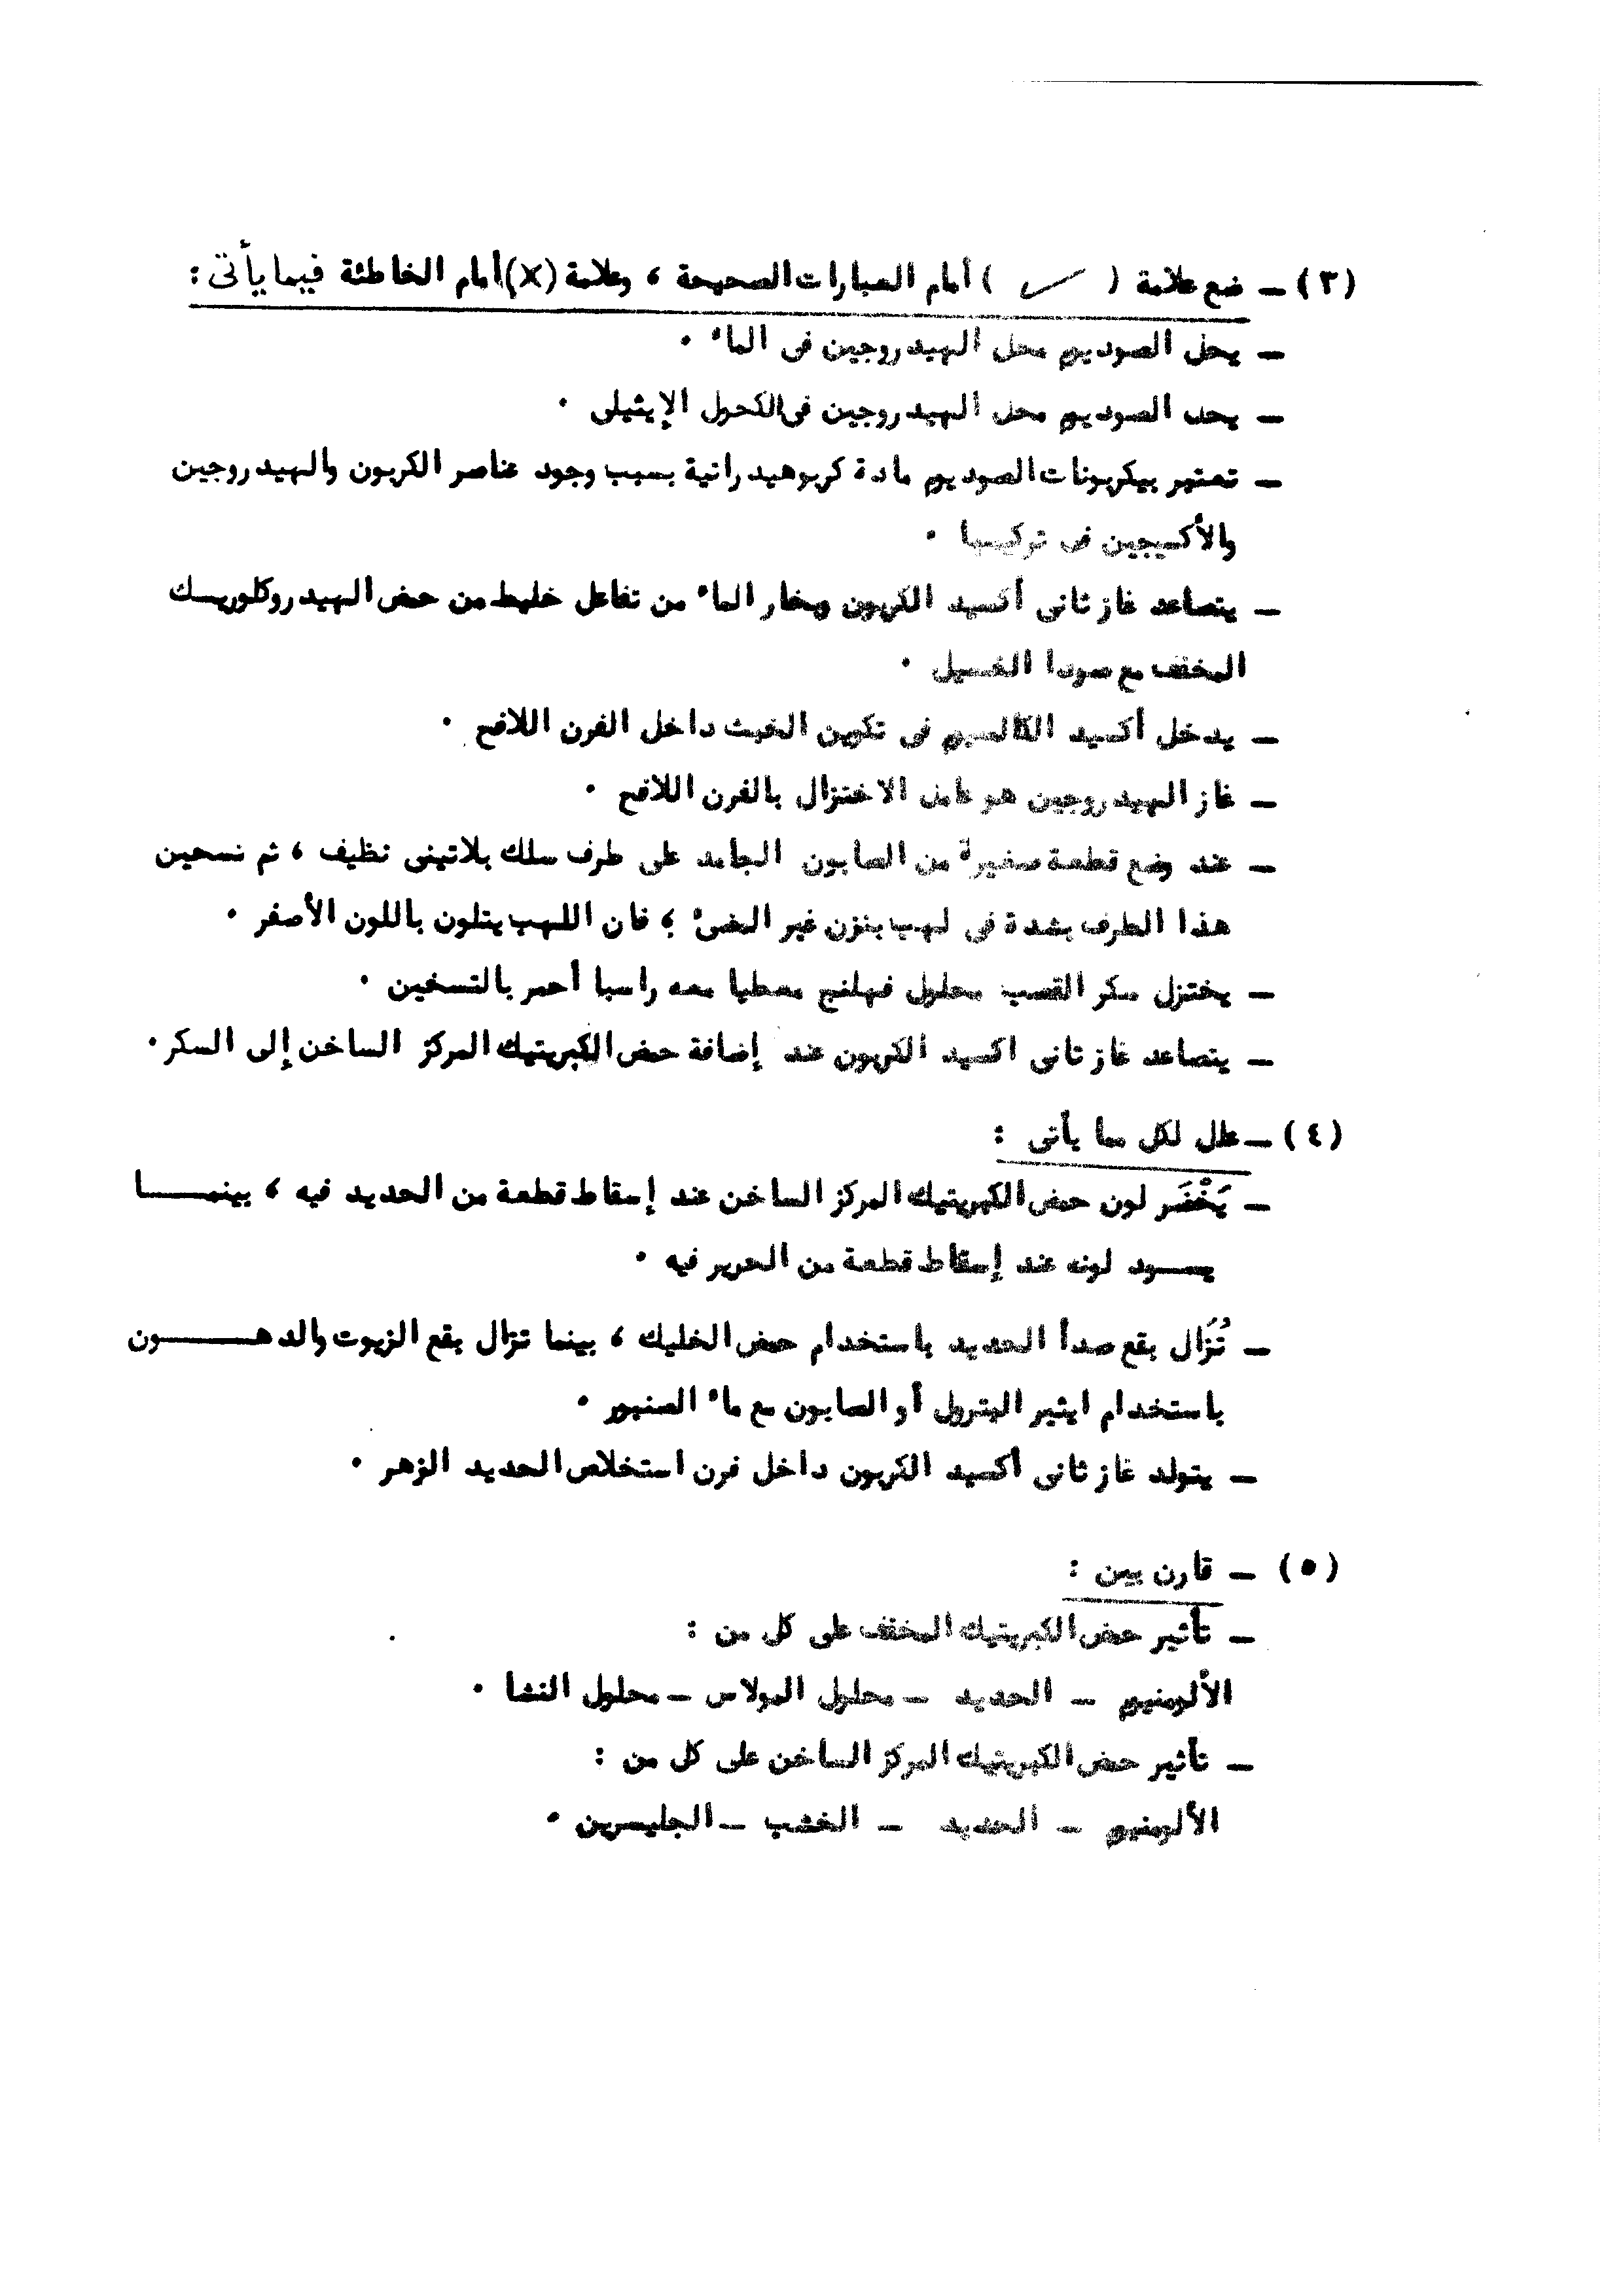 (٣) ــ ضع علامة ( ✓ ) أمام العبارات الصحيحة ، وعلامة (×) أمام الخاطئة فيما يأتى :
ــ يحل الصوديوم محل الهيدروجين فى الماء .
ــ يحل الصوديوم محل الهيدروجين فى الكحول الإيثيلى .
ــ تعتبر بيكربونات الصوديوم مادة كربوهيدراتية بسبب وجود عناصر الكربون والهيدروجين
والأكسيجين فى تركيبها .
ــ يتصاعد غاز ثانى أكسيد الكربون وبخار الماء من تفاعل خليط من حمض الهيدروكلوريــك
المخفف مع صودا الغسيل .
ــ يدخل أكسيد الكالسيوم فى تكوين الخبث داخل الفرن اللافح .
ــ غاز الهيدروجين هو عامل الاختزال بالفرن اللافح .
ــ عند وضع قطعة صغيرة من الصابون الجامد على طرف سلك بلاتينى نظيف ، ثم نسحين
هذا الطرف بشدة فى لهب بنزن غير المضىء ؛ فان اللهب يتلون باللون الأصفر .
ــ يختزل سكر القصب محلول فهلنج معطيا معه راسبا أحمر بالتسخين .
ــ يتصاعد غاز ثانى اكسيد الكربون عند إضافة حمض الكبريتيك المركز الساخن إلى السكر .
(٤) ــ علل لكل مما يأتى :
ــ يَخْضَر لون حمض الكبريتيك المركز الساخن عند إسقاط قطعة من الحديد فيه ، بينمـــــا
يســود لونه عند إسقاط قطعة من الحرير فيه .
ــ تُزَال بقع صدأ الحديد باستخدام حمض الخليك ، بينما تزال بقع الزيوت والدهـــــــون
باستخدام ايثير البترول أو الصابون مع ماء الصنبور .
ــ يتولد غاز ثانى أكسيد الكربون داخل فرن استخلاص الحديد الزهر .
(٥) ــ قارن بين :
ــ تأثير حمض الكبريتيك المخفف على كل من :
الألومنيوم ــ الحديد ــ محلول المولاس ــ محلول النشا .
ــ تأثير حمض الكبريتيك المركز الساخن على كل من :
الألومنيوم ــ الحديد ــ الخشب ــ الجليسرين .